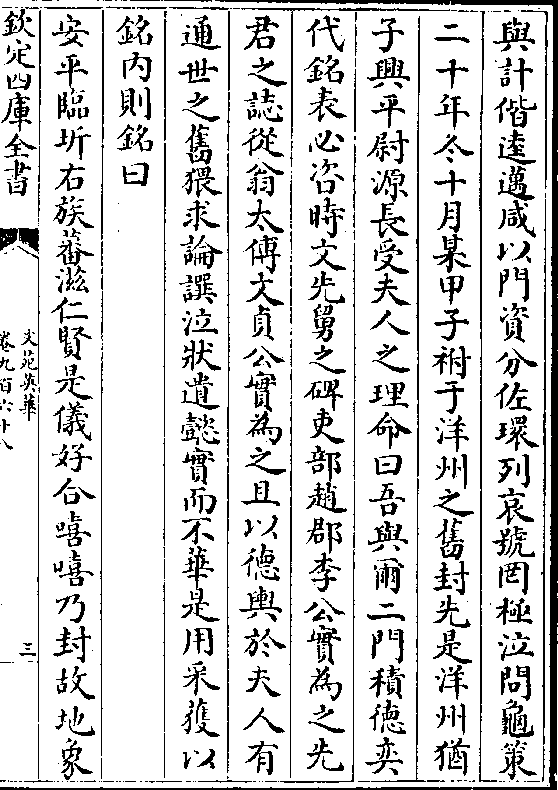 與計偕逵邁咸以門資分佐環列哀號罔極泣問龜策
二十年冬十月某甲子祔于洋州之舊封先是洋州猶
子興平尉源長受夫人之理命曰吾與爾二門積德奕
代銘表必咨時文先舅之碑吏部趙郡李公實為之先
君之誌從翁太傅文貞公實為之且以德輿於夫人有
通世之舊猥求論譔泣狀遺懿實而不華是用采獲以
銘內則銘曰
安平臨圻右族蕃滋仁賢是儀好合嘻嘻乃封故地象
欽定四庫全書
文苑英華
卷九百六十八
三